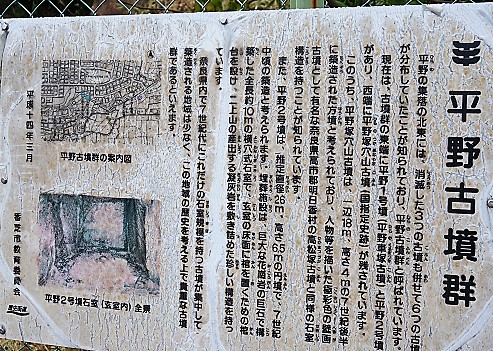 平野古墳群
平野の集落の北東には、消滅した3つの古墳も併せて6つの古墳
が分布していたことが知られており、平野古墳群と呼ばれています。
現在は、古墳群の東端に平野1号墳（平野車塚古墳）と平野2号墳
があり、西端に平野塚穴山古墳（国指定史跡）が残されています。
このうち、平野塚穴山古墳は、一辺18m、高さ4mの7世紀後半
に築造された方墳と考えられており、人物等を描いた極彩色の壁画
古墳として有名な奈良県高市郡明日香村の高松塚古墳と同様の石室
構造を持つことが知られています。
また、平野2号墳は、推定直径26m、高さ6.5mの円墳で、7世紀
中頃の築造と考えられます。埋葬施設は、巨大な花崗岩の巨石で構
築した全長約10mの横穴式石室で、玄室の床面に棺を置くための棺
台を設け、二上山の産出する凝灰岩を敷き詰めた珍しい構造を持っ
ています。
奈良県内で7世紀代にこれだけの石室規模を持つ古墳が集中して
築造される地域は少なく、この地域の歴史を考える上で貴重な古墳
群であるといえます。
平野古墳群の案内図
平野2号墳石室（玄室内）全景
平成十四年三月
香芝市教育委員会